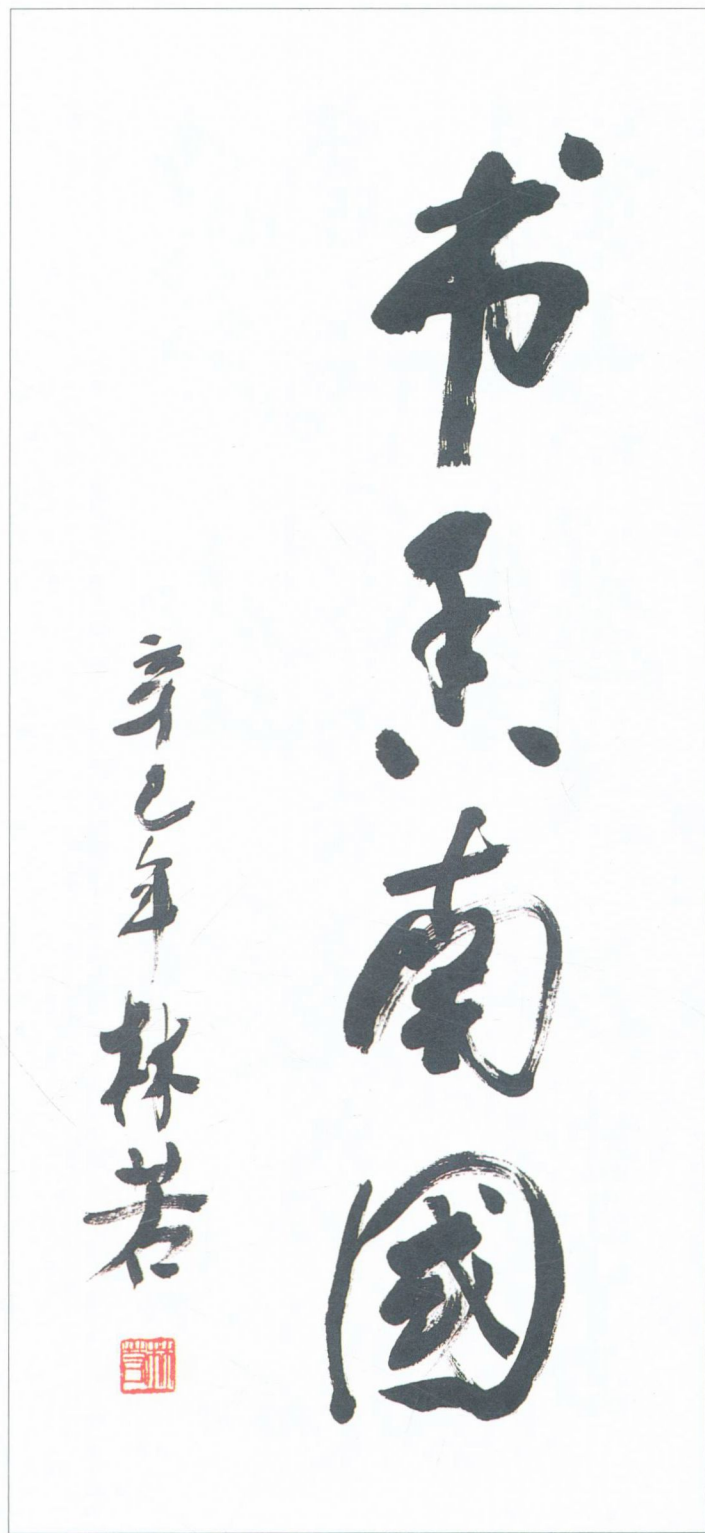 书香南國
辛巳年 林若
林若